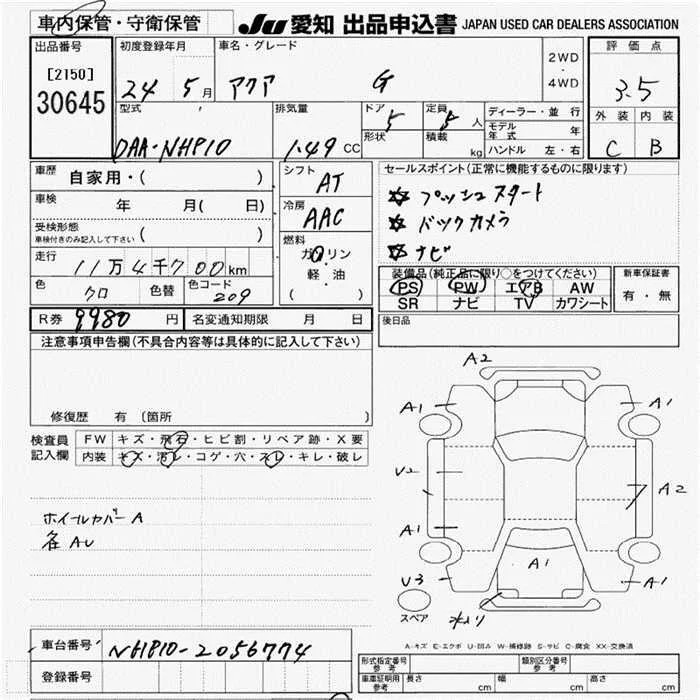 車内保管・守衛保管
JU 愛知 出品申込書 JAPAN USED CAR DEALERS ASSOCIATION
出品番号
[2150]
30645
初度登録年月
24 5月
車名・グレード
アクア G
2WD
・
4WD
評価点
3.5
外装 内装
C B
型式
DAA-NHP10
排気量
1.49 CC
ドア
5
形状
定員
5 人
積載
kg
ディーラー・並行
モデル年式 年
ハンドル 左・右
車歴 自家用・( )
車検 年 月( 日)
受検形態
車検付きのみ記入して下さい ( )
走行 11万4千700km
色 クロ 色替 色コード 209
シフト
AT
冷房
AAC
燃料
ガソリン
軽・油
( )
セールスポイント(正常に機能するものに限ります)
☆ プッシュスタート
☆ バックカメラ
☆ ナビ
装備品(純正品に限り○をつけてください)
PS PW エアB AW
SR ナビ TV カワシート
新車保証書
有・無
後日品
R券 9980 円 名変通知期限 月 日
注意事項申告欄(不具合内容等は具体的に記入して下さい)
修復歴 有 (箇所 )
検査員記入欄
FW キズ・飛石・ヒビ割・リペア跡・X要
内装 キズ・汚レ・コゲ・穴・スレ・キレ・破レ
ホイールカバーA
各AU
A2
A1 A1
U2 A2
A1
A1
U3 A1
スペア
A-キズ E-エクボ U-凹み W-補修跡 S-サビ C-腐食 XX-交換済
車台番号 NHP10-2056774
登録番号
型式指定番号 参考
類別区分番号 参考
車庫証明用 参考 長さ cm 幅 cm 高さ cm